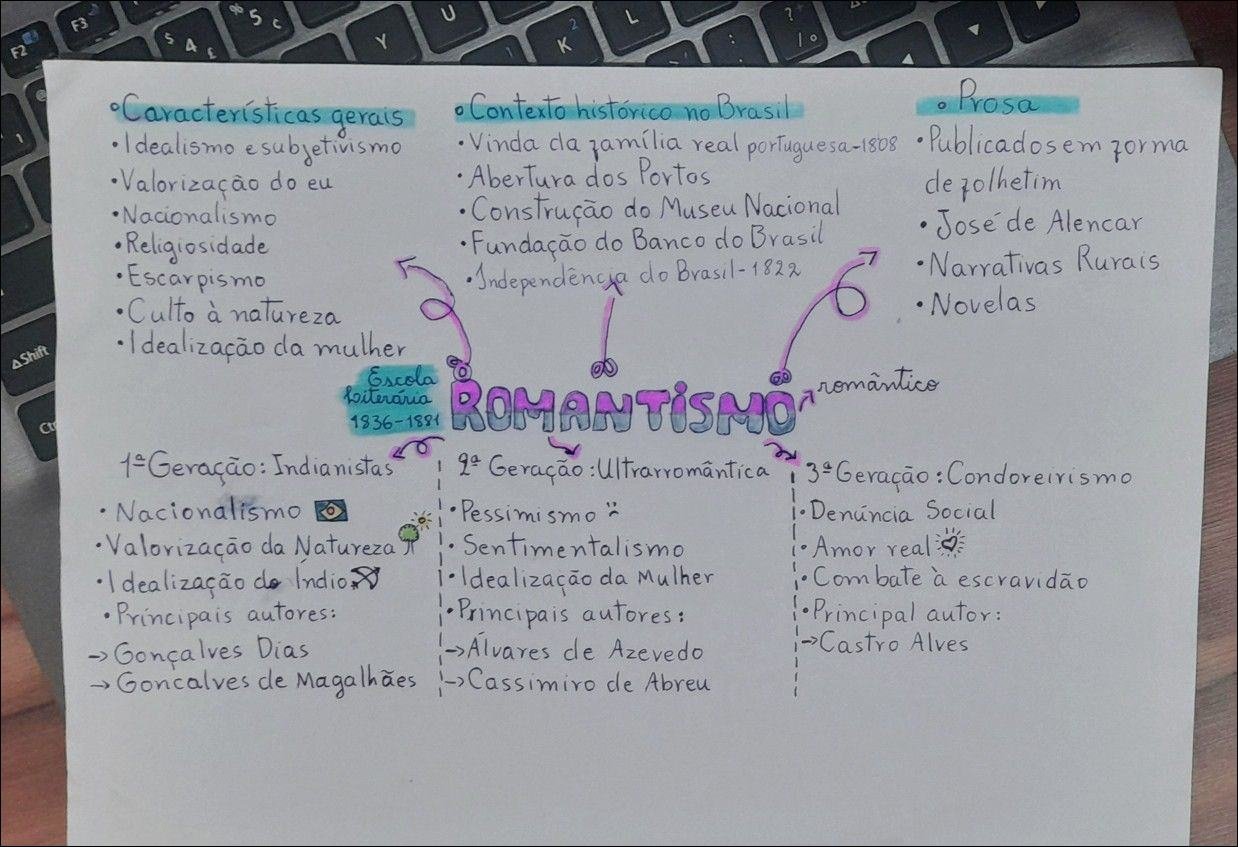 Características gerais
• Idealismo e subjetivismo
• Valorização do eu
• Nacionalismo
• Religiosidade
• Escarpismo
• Culto à natureza
• Idealização da mulher
Contexto histórico no Brasil
• Vinda da família real portuguesa-1808
• Abertura dos Portos
• Construção do Museu Nacional
• Fundação do Banco do Brasil
• Independência do Brasil-1822
Prosa
• Publicados em forma
de folhetim
• José de Alencar
• Narrativas Rurais
• Novelas
Escola
Literária
1836-1881
ROMANTISMO
romântico
1ª Geração: Indianistas
• Nacionalismo
• Valorização da Natureza
• Idealização do Índio
• Principais autores:
→ Gonçalves Dias
→ Goncalves de Magalhães
2ª Geração: Ultrarromântica
• Pessimismo
• Sentimentalismo
• Idealização da Mulher
• Principais autores:
→ Álvares de Azevedo
→ Cassimiro de Abreu
3ª Geração: Condoreirismo
• Denúncia Social
• Amor real
• Combate à escravidão
• Principal autor:
→ Castro Alves
F2
F3
% 5 ¢
$ 4 £
Y
U
K 2
L
: ;
? / °
Shift
Ctr